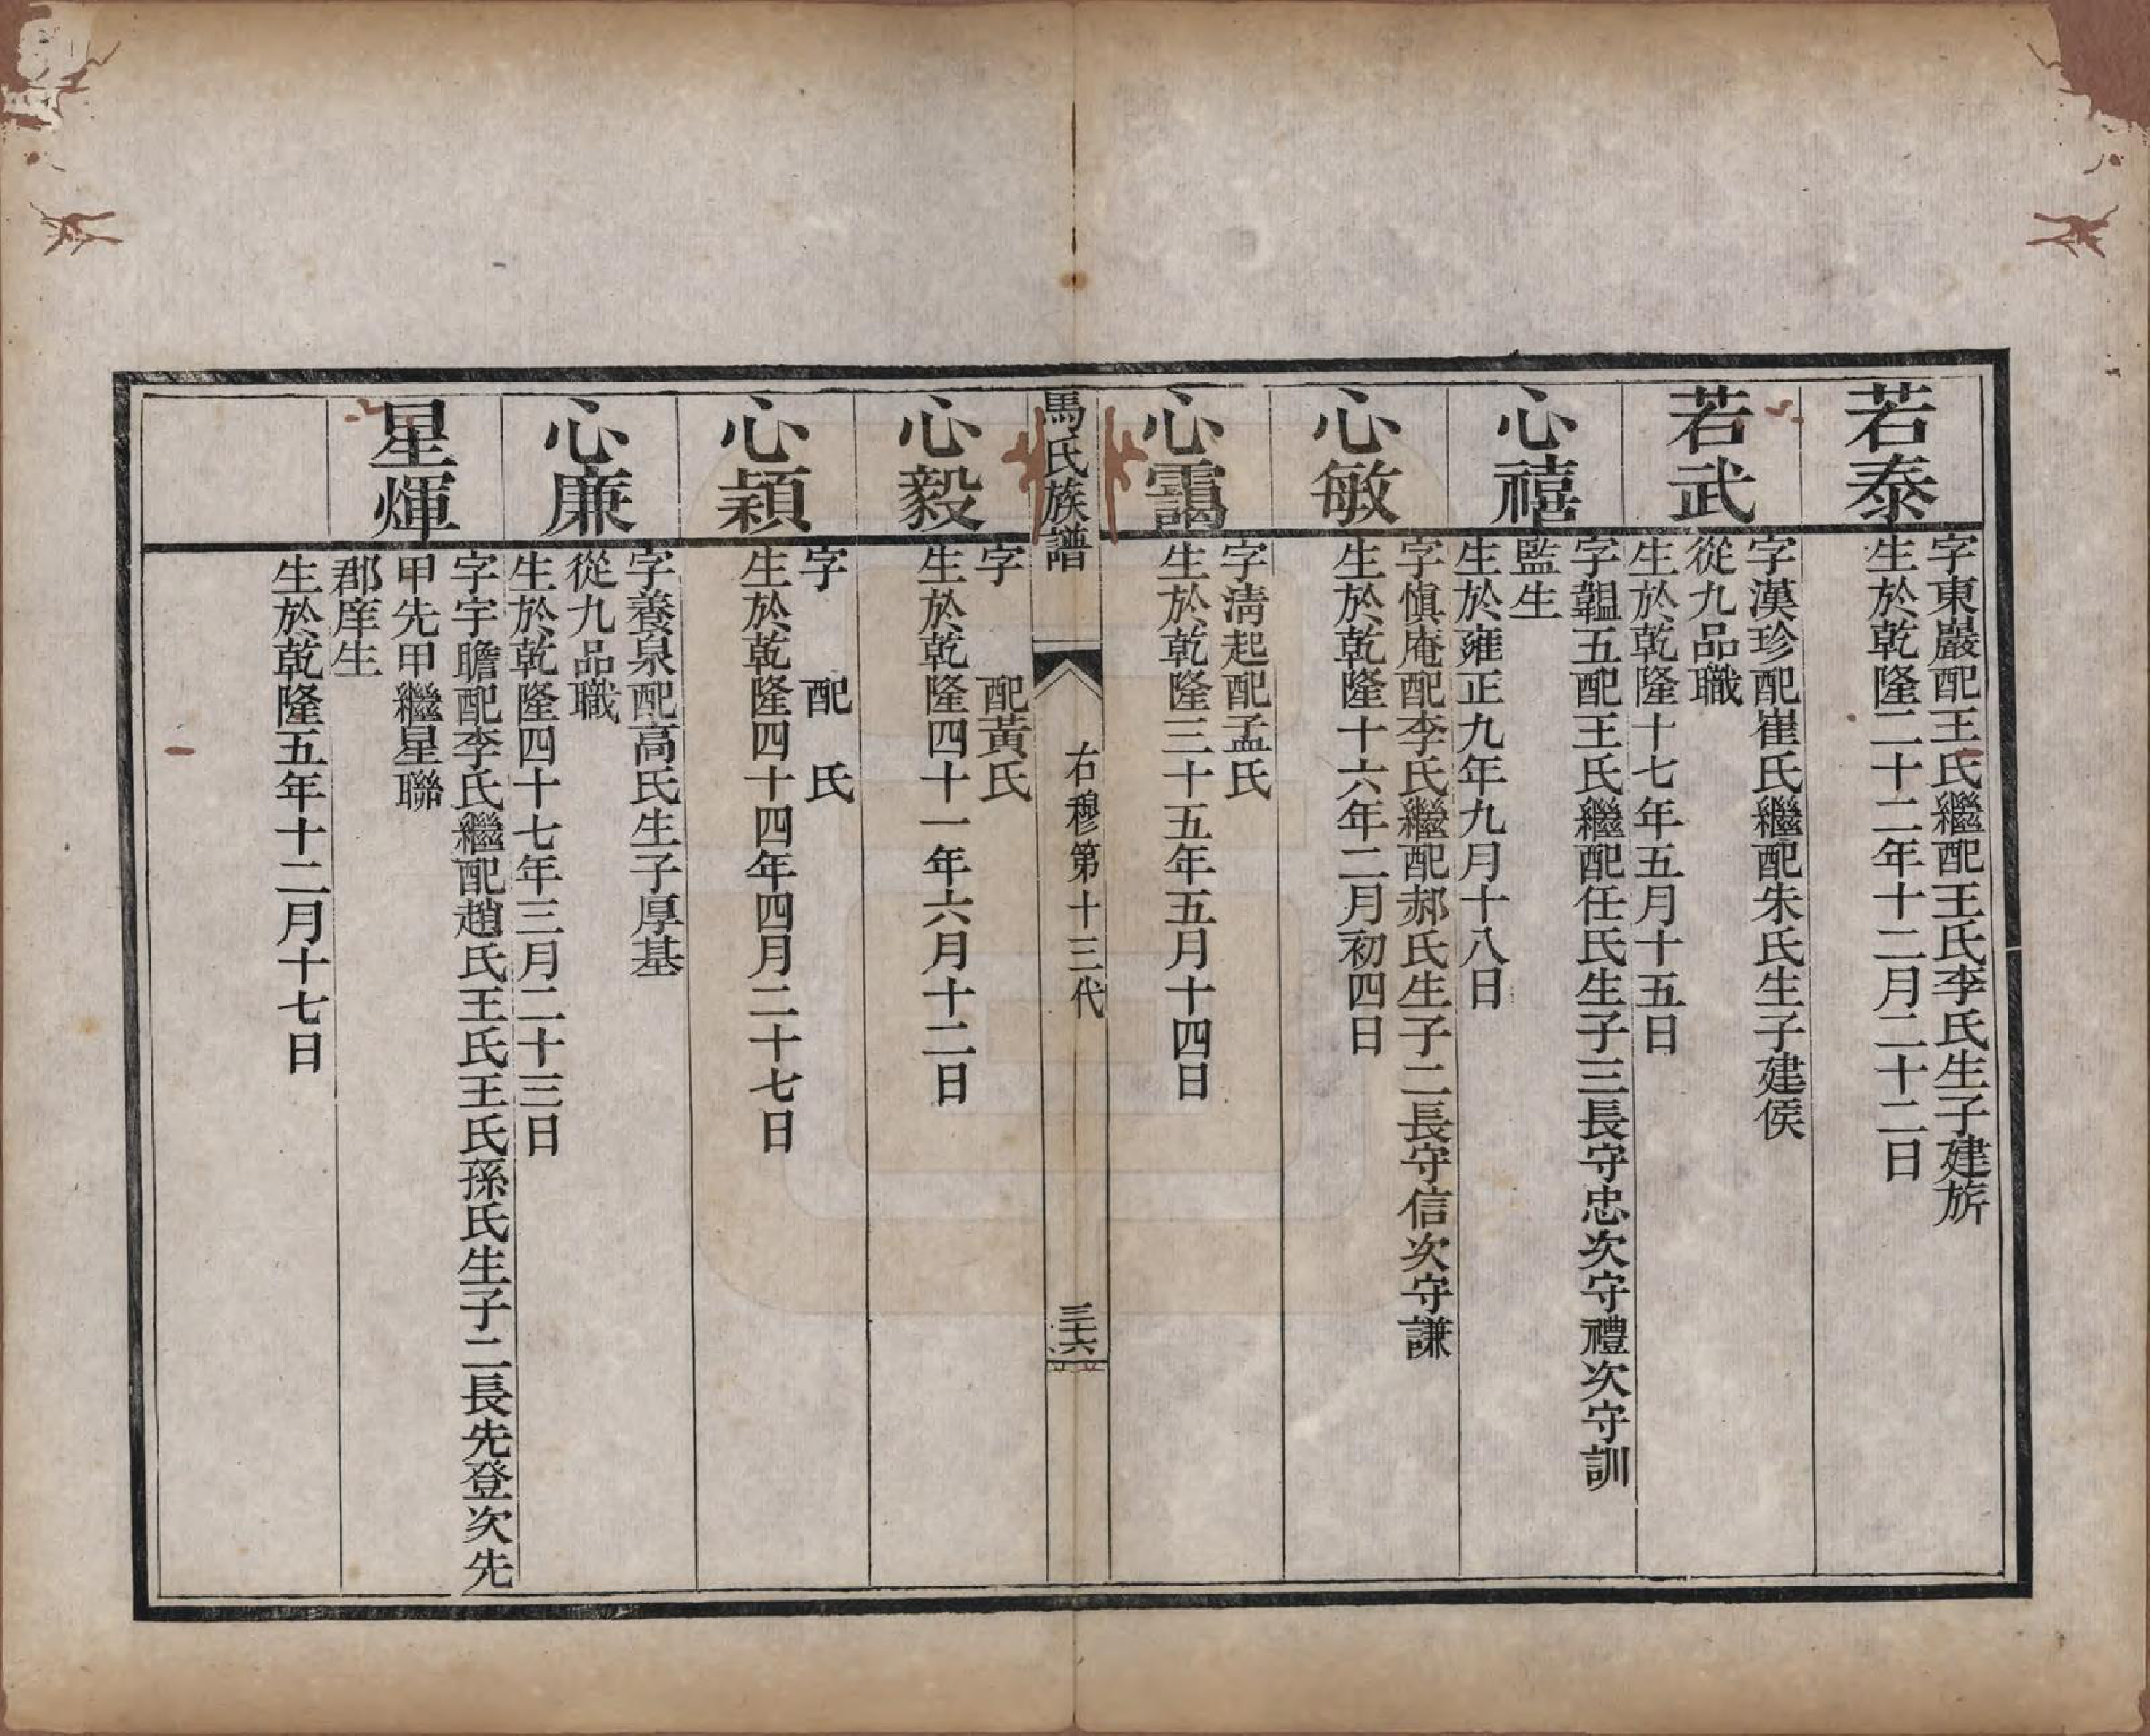 若泰
字東巖配王氏繼配王氏李氏生子建旂
生於乾隆二十二年十二月二十二日
若武
字漢珍配崔氏繼配朱氏生子建侯
從九品職
生於乾隆十七年五月十五日
心禧
字韞五配王氏繼配任氏生子三長守忠次守禮次守訓
監生
生於雍正九年九月十八日
心敏
字愼庵配李氏繼配郝氏生子二長守信次守謙
生於乾隆十六年二月初四日
心靄
字淸起配孟氏
生於乾隆三十五年五月十四日
馬氏族譜
右穆第十三代
三十六
心毅
字　配黃氏
生於乾隆四十一年六月十二日
心穎
字　配　氏
生於乾隆四十四年四月二十七日
心廉
字養泉配高氏生子厚基
從九品職
生於乾隆四十七年三月二十三日
星煇
字宇瞻配李氏繼配趙氏王氏王氏孫氏生子二長先登次先
甲先甲繼星聯
郡庠生
生於乾隆五年十二月十七日